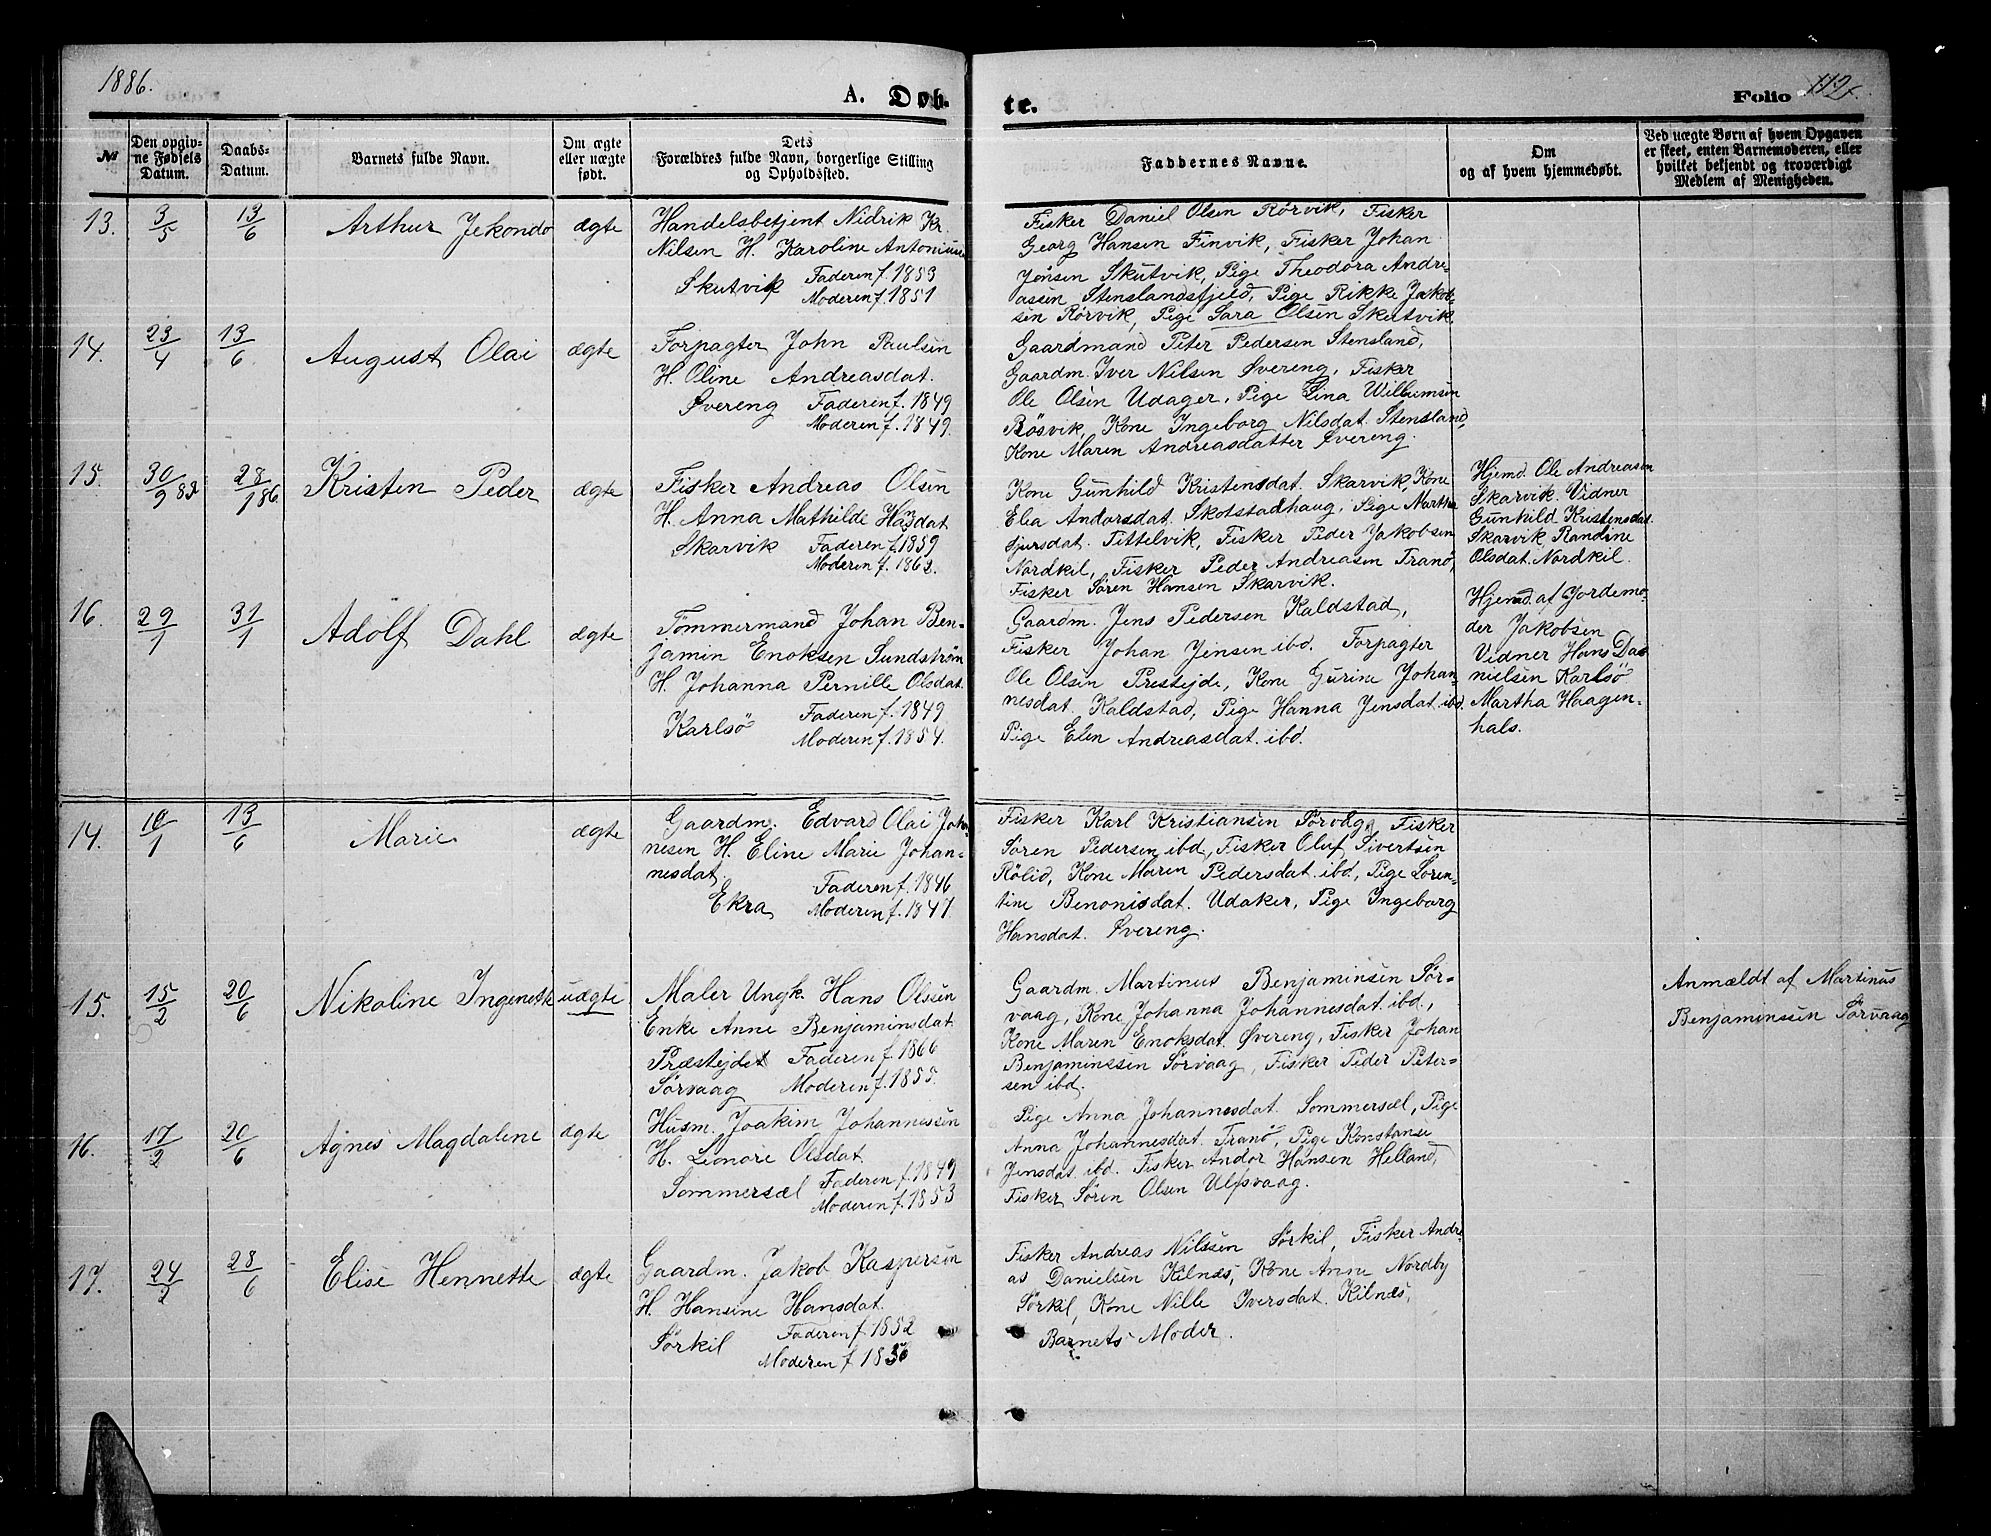 1886.
A. Døb-
te.
Folio 112.
№
Den opgiv-
ne Fødsels
Datum.
Daabs-
Datum.
Barnets fulde Navn.
Om ægte
eller uægte
født.
Dets
Forældres fulde Navn, borgerlige Stilling
og Opholdssted.
Faddernes Navne.
Om
og af hvem hjemmedøbt.
Ved uægte Børn af hvem Opgaven
er skeet, enten Barnemoderen, eller
hvilket bekjendt og troværdigt
Medlem af Menigheden.
13. 3/5 13/6 Arthur Jekondo ægte
Handelsbetjent Nidrik Kr.
Nilsen H. Karoline Antoniusen
Skutvik Faderen f. 1853
Moderen f. 1851
Fisker Daniel Olsen Rörvik, Fisker
Georg Hansen Finvik, Fisker Johan
Jensen Skutvik, Pige Theodora Andre-
assen Stenslandsfjeld, Pige Rikke Jakob-
sen Rörvik, Pige Sara Olsen Skutvik
14. 23/4 13/6 August Olai ægte
Forpagter John Paulsen
H. Oline Andreasdat.
Øvereng Faderen f. 1849
Moderen f. 1849.
Gaardmand Peter Pedersen Stensland,
Gaardm. Iver Nilsen Øvereng, Fisker
Ole Olsen Udager, Pige Lina Willumsen
Bösvik, Kone Ingeborg Nilsdat. Stensland,
Kone Maren Andreasdatter Øvereng.
15. 30/9 82 28/1 86 Kristen Peder ægte
Fisker Andreas Olsen
H. Anna Mathilde Hansdat
Skarvik Faderen f. 1859
Moderen f. 1862.
Kone Gunhild Kristensdat. Skarvik, Kone
Elea Andorsdat. Skotstadhaug, Pige Martha
Sjursdat. Tittelvik, Fisker Peder Jakobsen
Nordkil, Fisker Peder Andreasen Tranö,
Fisker Sören Hansen Skarvik.
Hjemd. Ole Andreasen
Skarvik. Vidner
Gunhild Kristensdat.
Skarvik, Randine
Olsdat. Nordkil.
16. 29/1 31/1 Adolf Dahl ægte
Tömmermand Johan Ben-
jamin Enoksen Sundström
H. Johanna Pernille Olsdat.
Karlsö Faderen f. 1849
Moderen f. 1854.
Gaardm. Jens Pedersen Kaldstad,
Fisker Johan Jensen ibd. Forpagter
Ole Olsen Prestejde, Kone Gurine Johan-
nesdat. Kaldstad, Pige Hanna Jensdat. ibd.
Pige Elen Andreasdat. ibd.
Hjemd. af Jordemo-
der Jakobsen
Vidner Hans Da-
nielsen Karlsö
Martha Haagen-
hals.
14. 10/1 13/6 Marie ægte
Gaardm. Edvard Olai Joha-
nesen H. Eline Marie Johan-
nesdat.
Faderen f. 1846
Ekra Moderen f. 1847.
Fisker Karl Kristiansen Sörvåg, Fisker
Sören Pedersen ibd, Fisker Oluf Sivertsen
Rölid, Kone Maren Pedersdat. ibd, Pige Soren-
tine Benonisdat. Udaker, Pige Ingeborg
Hansdat. Øvereng.
15. 15/2 20/6 Nikoline Ingenette uægte
Maler Ungk. Hans Olssen
Enke Anne Benjaminsdat
Præstejdet Faderen f. 1866
Sörvaag Moderen f. 1855.
Gaardm. Martinus Benjaminsen Sör-
vaag, Kone Johanna Johannesdat. ibd.,
Kone Maren Enoksdat. Øvereng, Fisker Johan
Benjaminssen Sörvaag, Fisker Peder Peter-
sen ibd.
Anmældt af Martinus
Benjaminsen Sörvaag
16. 17/2 20/6 Agnes Magdalene ægte
Husm. Joakim Johannessen
H. Leonore Olsdat.
Sommersæl Faderen f. 1849
Moderen f. 1853
Pige Anna Johannesdat. Sommersæl, Pige
Anna Johannesdat. Tranö, Pige Konstanse
Jensdat. ibd. Fisker Andor Hansen Helland,
Fisker Sören Olsen Ulfsvaag.
17. 24/2 28/6 Elise Hennette ægte
Gaardm. Jakob Kaspersen
H. Hansine Hansdat.
Sörkil Faderen f. 1852
Moderen f. 1850
Fisker Andreas Nilssen Sörkil, Fisker Andre-
as Danielsen Kilnæs, Kone Anne Nordby
Sörkil, Kone Nille Iversdat. Kilnæs,
Barnets Moder.